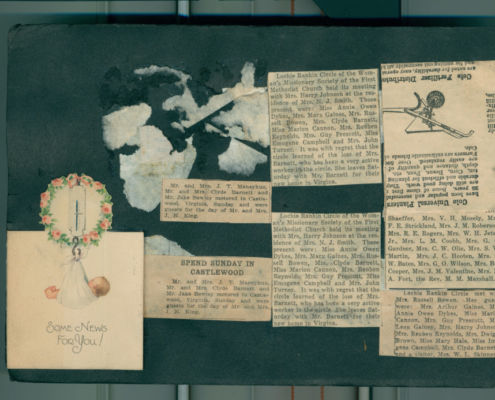 Some News
For You!
Mr. and Mrs. J. T. Manephus,
Mr. and Mrs. Clyde Barnett and
Mr. Jake Bewley motored to Castle-
wood, Virginia, Sunday and were
guests for the day of Mr. and Mrs.
J. N. King.
SPEND SUNDAY IN
CASTLEWOOD
Mr. and Mrs. J. T. Manephus,
Mr. and Mrs. Clyde Barnett and
Mr. Jake Bewley motored to Castle-
wood, Virginia, Sunday and were
guests for the day of Mr. and Mrs.
J. N. King.
Luckie Rankin Circle of the Wom-
an's Missionary Society of the First
Methodist Church held its meeting
with Mrs. Harry Johnson at the res-
idence of Mrs. N. J. Smith. Those
present were: Miss Annie Owen
Dykes, Mrs. Mara Gaines, Mrs. Rus-
sell Bowen, Mrs. Clyde Barnett,
Miss Marion Cannon, Mrs. Reuben
Reynolds, Mrs. Guy Prescott, Miss
Emogene Campbell and Mrs. John
Turner. It was with regret that the
circle learned of the loss of Mrs.
Barnett, who has been a very active
worker in the circle. She leaves Sat-
urday with Mr. Barnett for their
new home in Virginia.
Luckie Rankin Circle of the Wom-
an's Missionary Society of the First
Methodist Church held its meeting
with Mrs. Harry Johnson at the res-
idence of Mrs. N. J. Smith. Those
present were: Miss Annie Owen
Dykes, Mrs. Mara Gaines, Mrs. Rus-
sell Bowen, Mrs. Clyde Barnett,
Miss Marion Cannon, Mrs. Reuben
Reynolds, Mrs. Guy Prescott, Miss
Emogene Campbell and Mrs. John
Turner. It was with regret that the
circle learned of the loss of Mrs.
Barnett, who has been a very active
worker in the circle. She leaves Sat-
urday with Mr. Barnett for their
new home in Virginia.
Cole Fertilizer Distributo
Cole Universal Planters
Shaeffer, Mrs. V. H. Mosely, M
F. E. Strickland, Mrs. J. M. Roberso
Mrs. R. E. Rogers, Mrs. W. H. Jenn
Jr., Mrs. L. M. Cobb, Mrs. G.
Gardner, Mrs. C. W. Olio, Mrs. S. V
Martin, Mrs. J. C. Hooten, Mrs.
W. Bates, Mrs. G. O. Wilson, Mrs. B
Cooper, Mrs. J. M. Valentine, Mrs. L
A. Fort, the Rev. M. M. Marshall
Luckie Rankin Circle met w
Mrs. Russell Bowen. Her gue
were: Mrs. Arthur Gaines, M
Annie Owen Dykes, Miss Mari
Cannon, Mrs. Guy Prescott, M
Leen Gainey, Mrs. Harry Johnso
Mrs. Reuben Reynolds, Mrs. Dwig
Brown, Miss Mary Hale, Miss Im
gene Campbell, Mrs. Clyde Barne
and a visitor, Mrs. W. L. Skinne